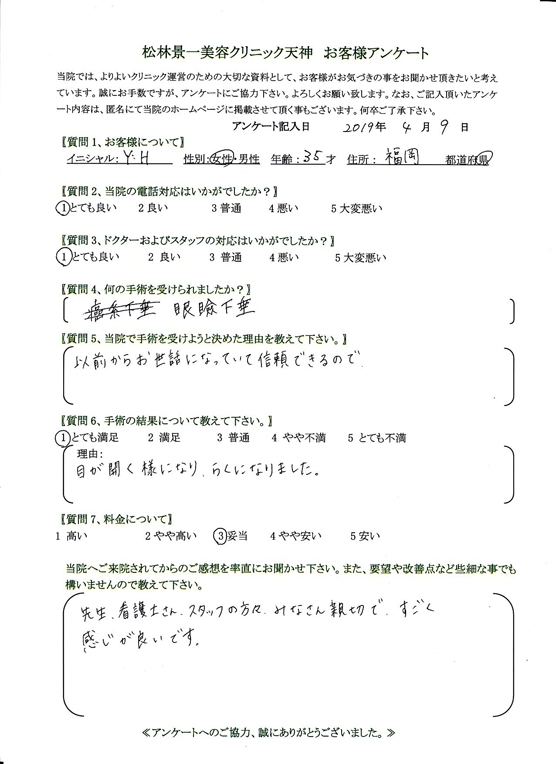 松林景一美容クリニック天神　お客様アンケート
当院では、よりよいクリニック運営のための大切な資料として、お客様がお気づきの事をお聞かせ頂きたいと考え
ています。誠にお手数ですが、アンケートにご協力下さい。よろしくお願い致します。なお、ご記入頂いたアンケ
ート内容は、匿名にて当院のホームページに掲載させて頂く事もございます。何卒ご了承下さい。
アンケート記入日　2019年　4月　9日
【質問1、お客様について】
イニシャル：Y.H　性別：女性・男性　年齢：35才　住所：福岡　都道府県
【質問2、当院の電話対応はいかがでしたか？】
1とても良い　2良い　3普通　4悪い　5大変悪い
【質問3、ドクターおよびスタッフの対応はいかがでしたか？】
1とても良い　2良い　3普通　4悪い　5大変悪い
【質問4、何の手術を受けられましたか？】
眼瞼下垂
【質問5、当院で手術を受けようと決めた理由を教えて下さい。】
以前からお世話になっていて信頼できるので
【質問6、手術の結果について教えて下さい。】
1とても満足　2満足　3普通　4やや不満　5とても不満
理由：
目が開く様になり、らくになりました。
【質問7、料金について】
1高い　2やや高い　3妥当　4やや安い　5安い
当院へご来院されてからのご感想を率直にお聞かせ下さい。また、要望や改善点など些細な事でも
構いませんので教えて下さい。
先生、看護士さん、スタッフの方々、みなさん親切で、すごく
感じが良いです。
≪アンケートへのご協力、誠にありがとうございました。≫